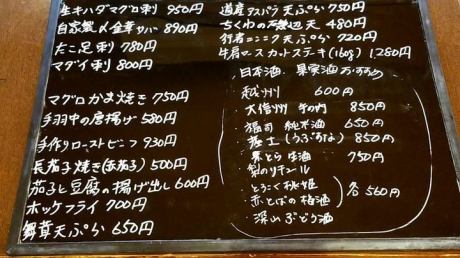 生キハダマグロ刺 950円
自家製〆金華サバ 890円
たこ足刺 780円
マダイ刺 800円
マグロかま焼き 750円
手羽中の唐揚げ 580円
手作りローストビーフ 930円
長茄子焼き(赤茄子) 500円
茄子と豆腐の揚げ出し 600円
ホッケフライ 700円
舞茸天ぷら 650円
道産アスパラ 天ぷら 750円
ちくわの磯辺天 480円
行者ニンニク 天ぷら 720円
牛肩ロース カットステーキ(160g) 1,280円
日本酒・果実酒おすすめ
・越州 600円
・大信州 手の内 850円
・福司 純米酒 650円
・(うぶすな) 850円
生酒 750円
梨のリキュール
・とろこく桃姫
・赤とばの梅酒
・深山ぶどう酒
各560円